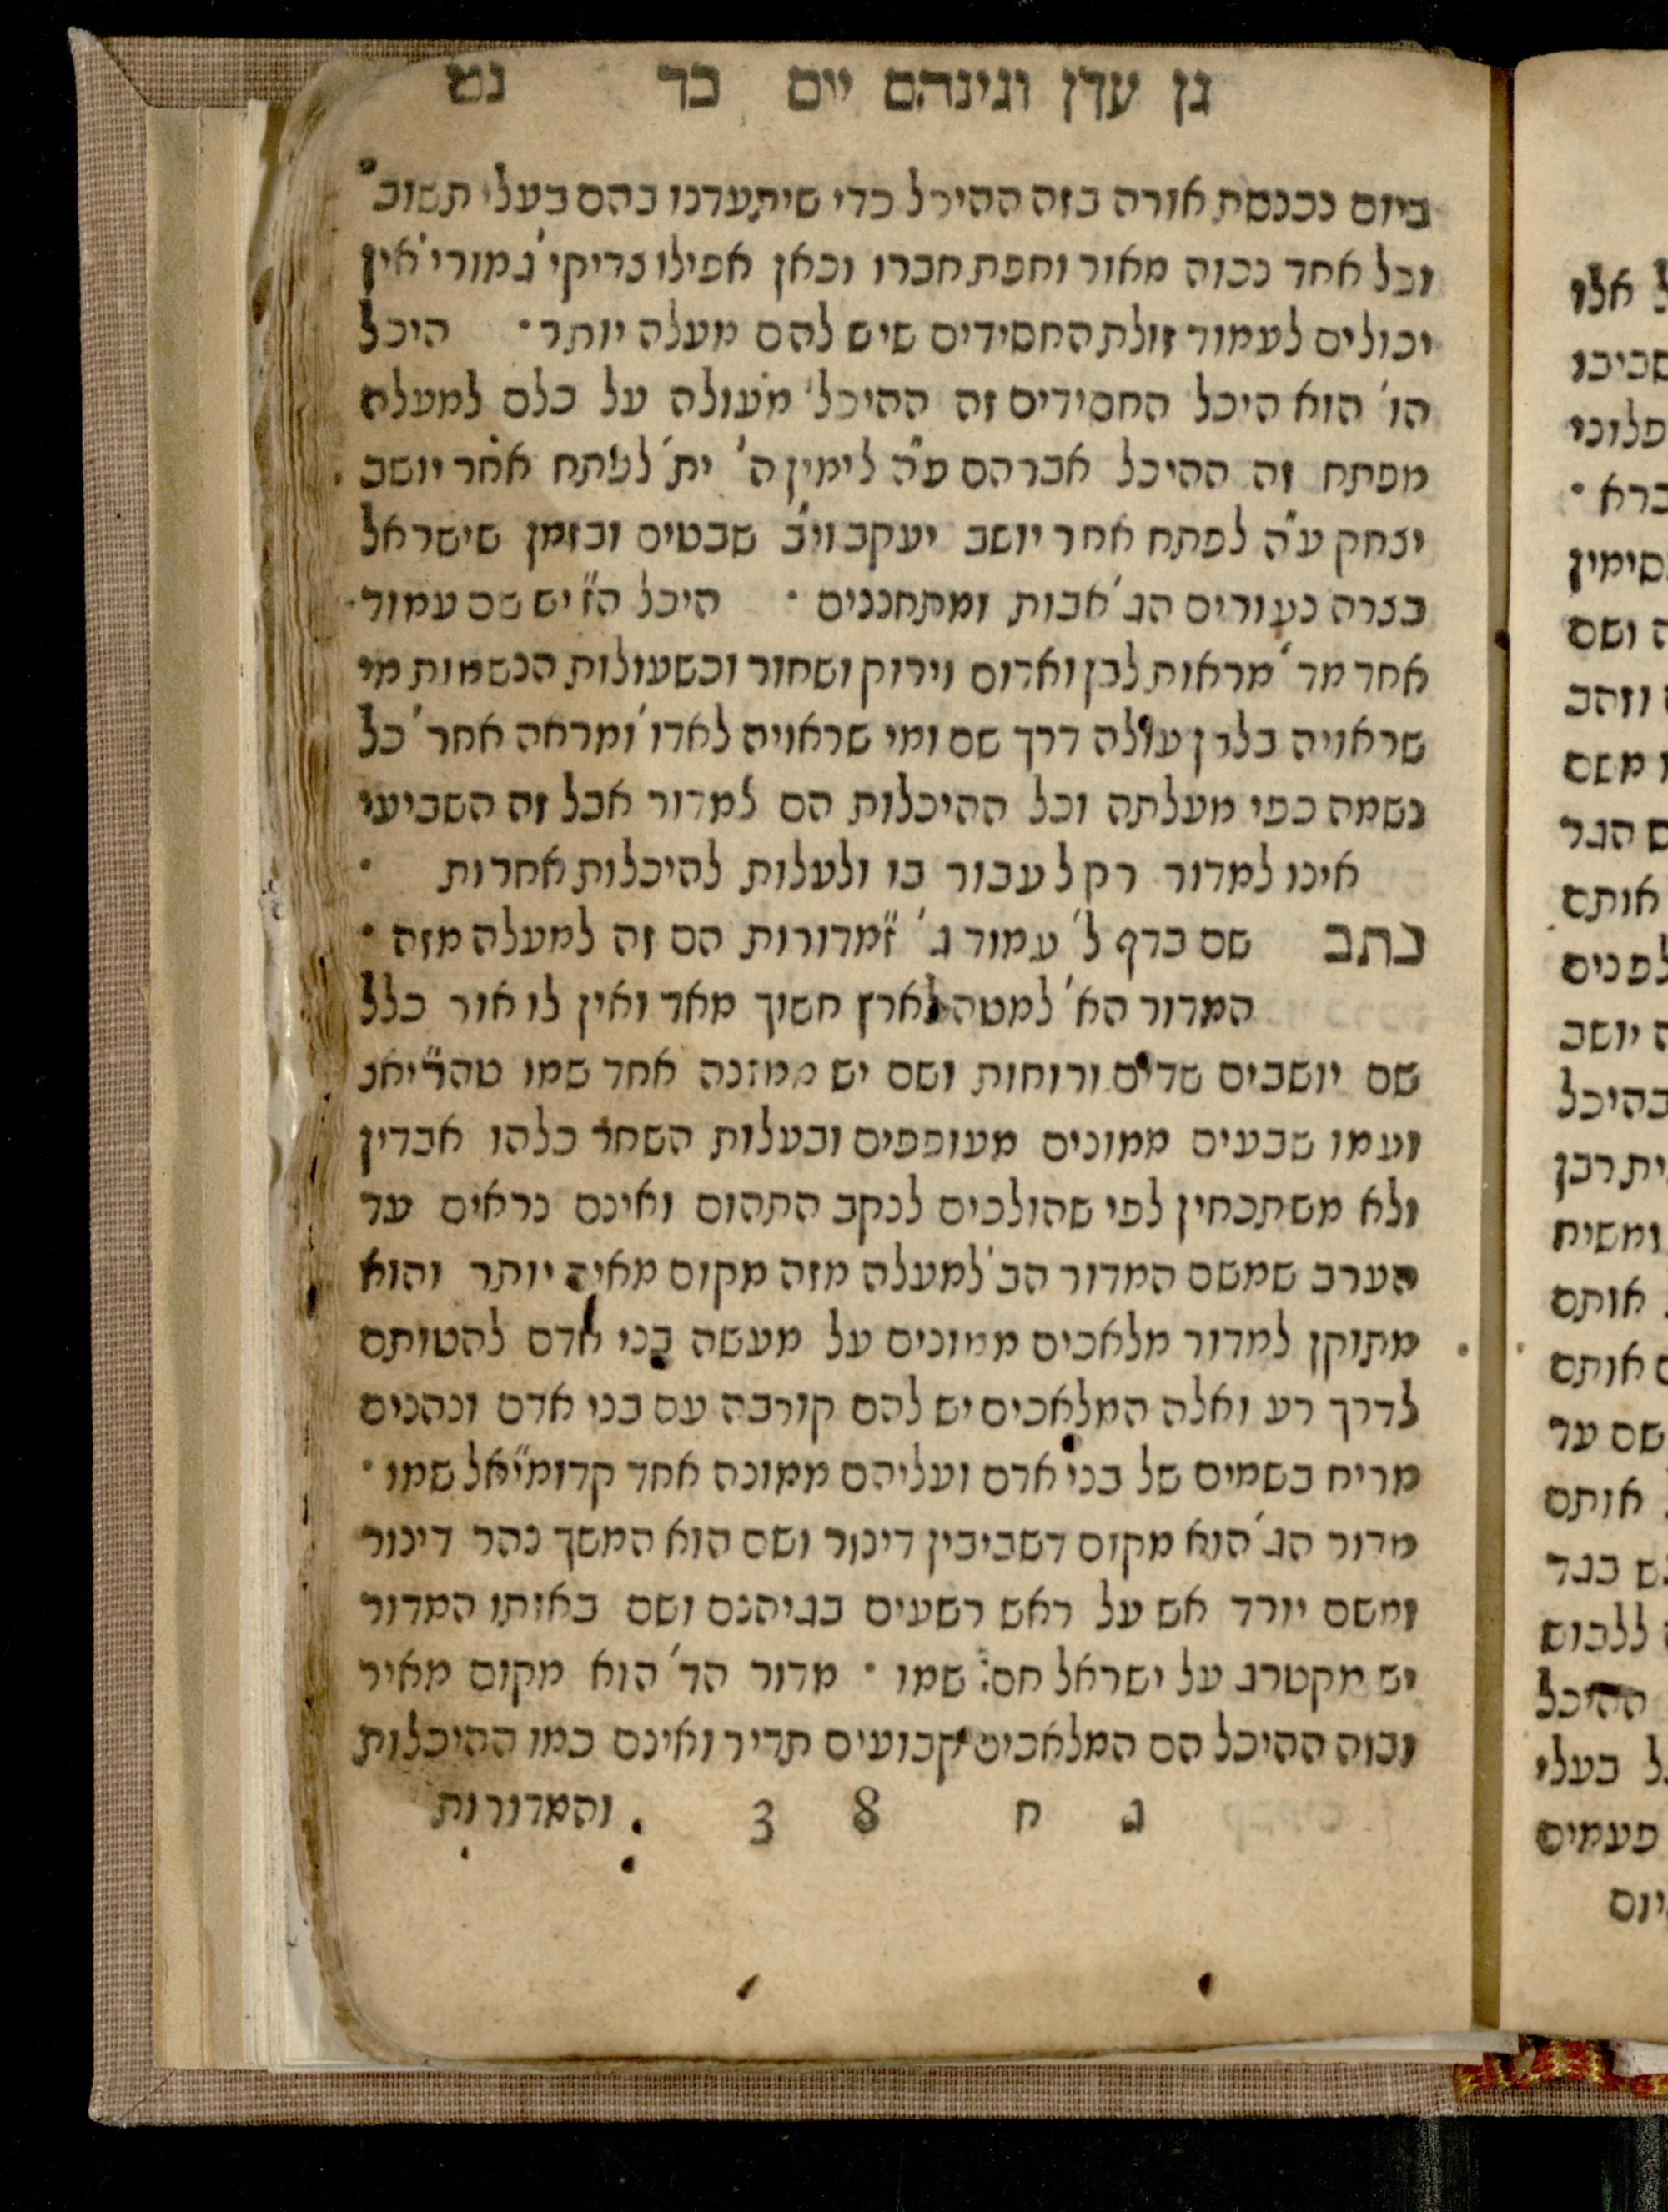 גן עדן וגינהם יום כד נט
ביום נכנסת אורה בזה ההיכל כדי שיתעדנו בהם בעלי תשוב׳
וכל אחד נכוה מאור וחפת חברו וכאן אפילו צדיקי׳ גמורי׳ אין
יכולים לעמוד זולת החסידים שיש להם מעלה יותר · היכל
הו׳ הוא היכל החסידים זה ההיכל מעולה על כלם למעלה
מפתח זה ההיכל אברהם ע״ה לימין ה׳ ית׳ לפתח אחר יושב
יצחק ע״ה לפתח אחר יושב יעקב וי״ב שבטים ובזמן שישראל
בצרה נעורים הג׳ אבות ומתחננים · היכל הז״ יש שם עמוד
אחד מד׳ מראות לבן ואדום וירוק ושחור וכשעולות הנשמות מי
שראויה בלבן עולה דרך שם ומי שראויה לאדו׳ ומראה אחר׳ כל
נשמה כפי מעלתה וכל ההיכלות הם למדור אבל זה השביעי
אינו למדור רק לעבור בו ולעלות להיכלות אחרות ·
כתב שם בדף ל׳ עמוד ג׳ ז״מדורות הם זה למעלה מזה ·
המדור הא׳ למטה לארץ חשוך מאד ואין לו אור כלל
שם יושבים שדים ורוחות ושם יש ממונה אחד שמו
ועמו שבעים ממונים מעופפים ובעלות השחר כלהו אבדין
ולא משתכחין לפי שהולכים לנקב התהום ואינם נראים עד
הערב שמשם המדור הב׳ למעלה מזה מקום מאיר יותר והוא
מתוקן למדור מלאכים ממונים על מעשה בני אדם להטותם
לדרך רע ואלה המלאכים יש להם קורבה עם בני אדם ונהנים
מריח בשמים של בני אדם ועליהם ממונה אחד קדומי״אל שמו ·
מדור הג׳ הוא מקום דשביבין דינור ושם הוא המשך נהר דינור
ומשם יורד אש על ראש רשעים בגיהנם ושם באותו המדור
יש מקטרג על ישראל שמו · מדור הד׳ הוא מקום מאיר
וכוה ההיכל הם המלאכים קבועים תדיר ואינם כמו ההיכלות
ג ח 8 3 והמדורות